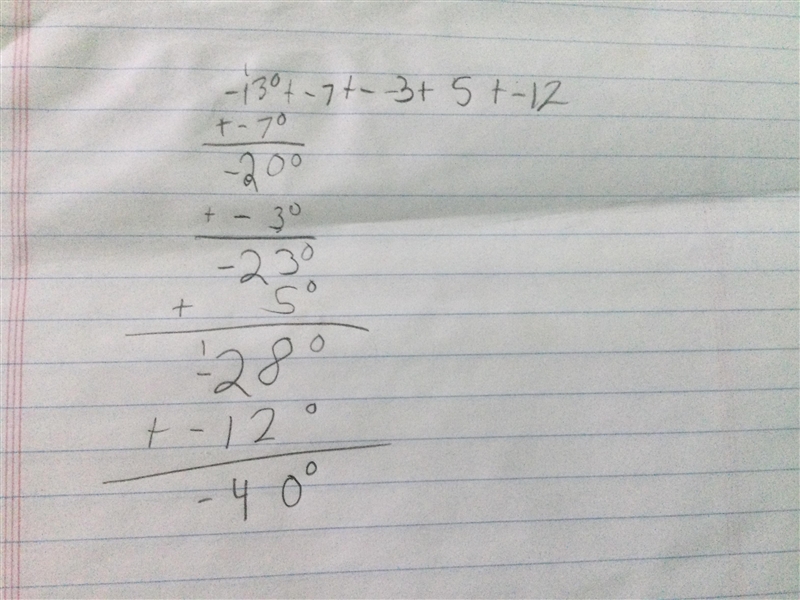 1
-13° + -7 + - -3 + 5 + -12
+ - 7°
-20°
+ - 3°
-23°
+ 5°
1
-28°
+ -12°
-40°